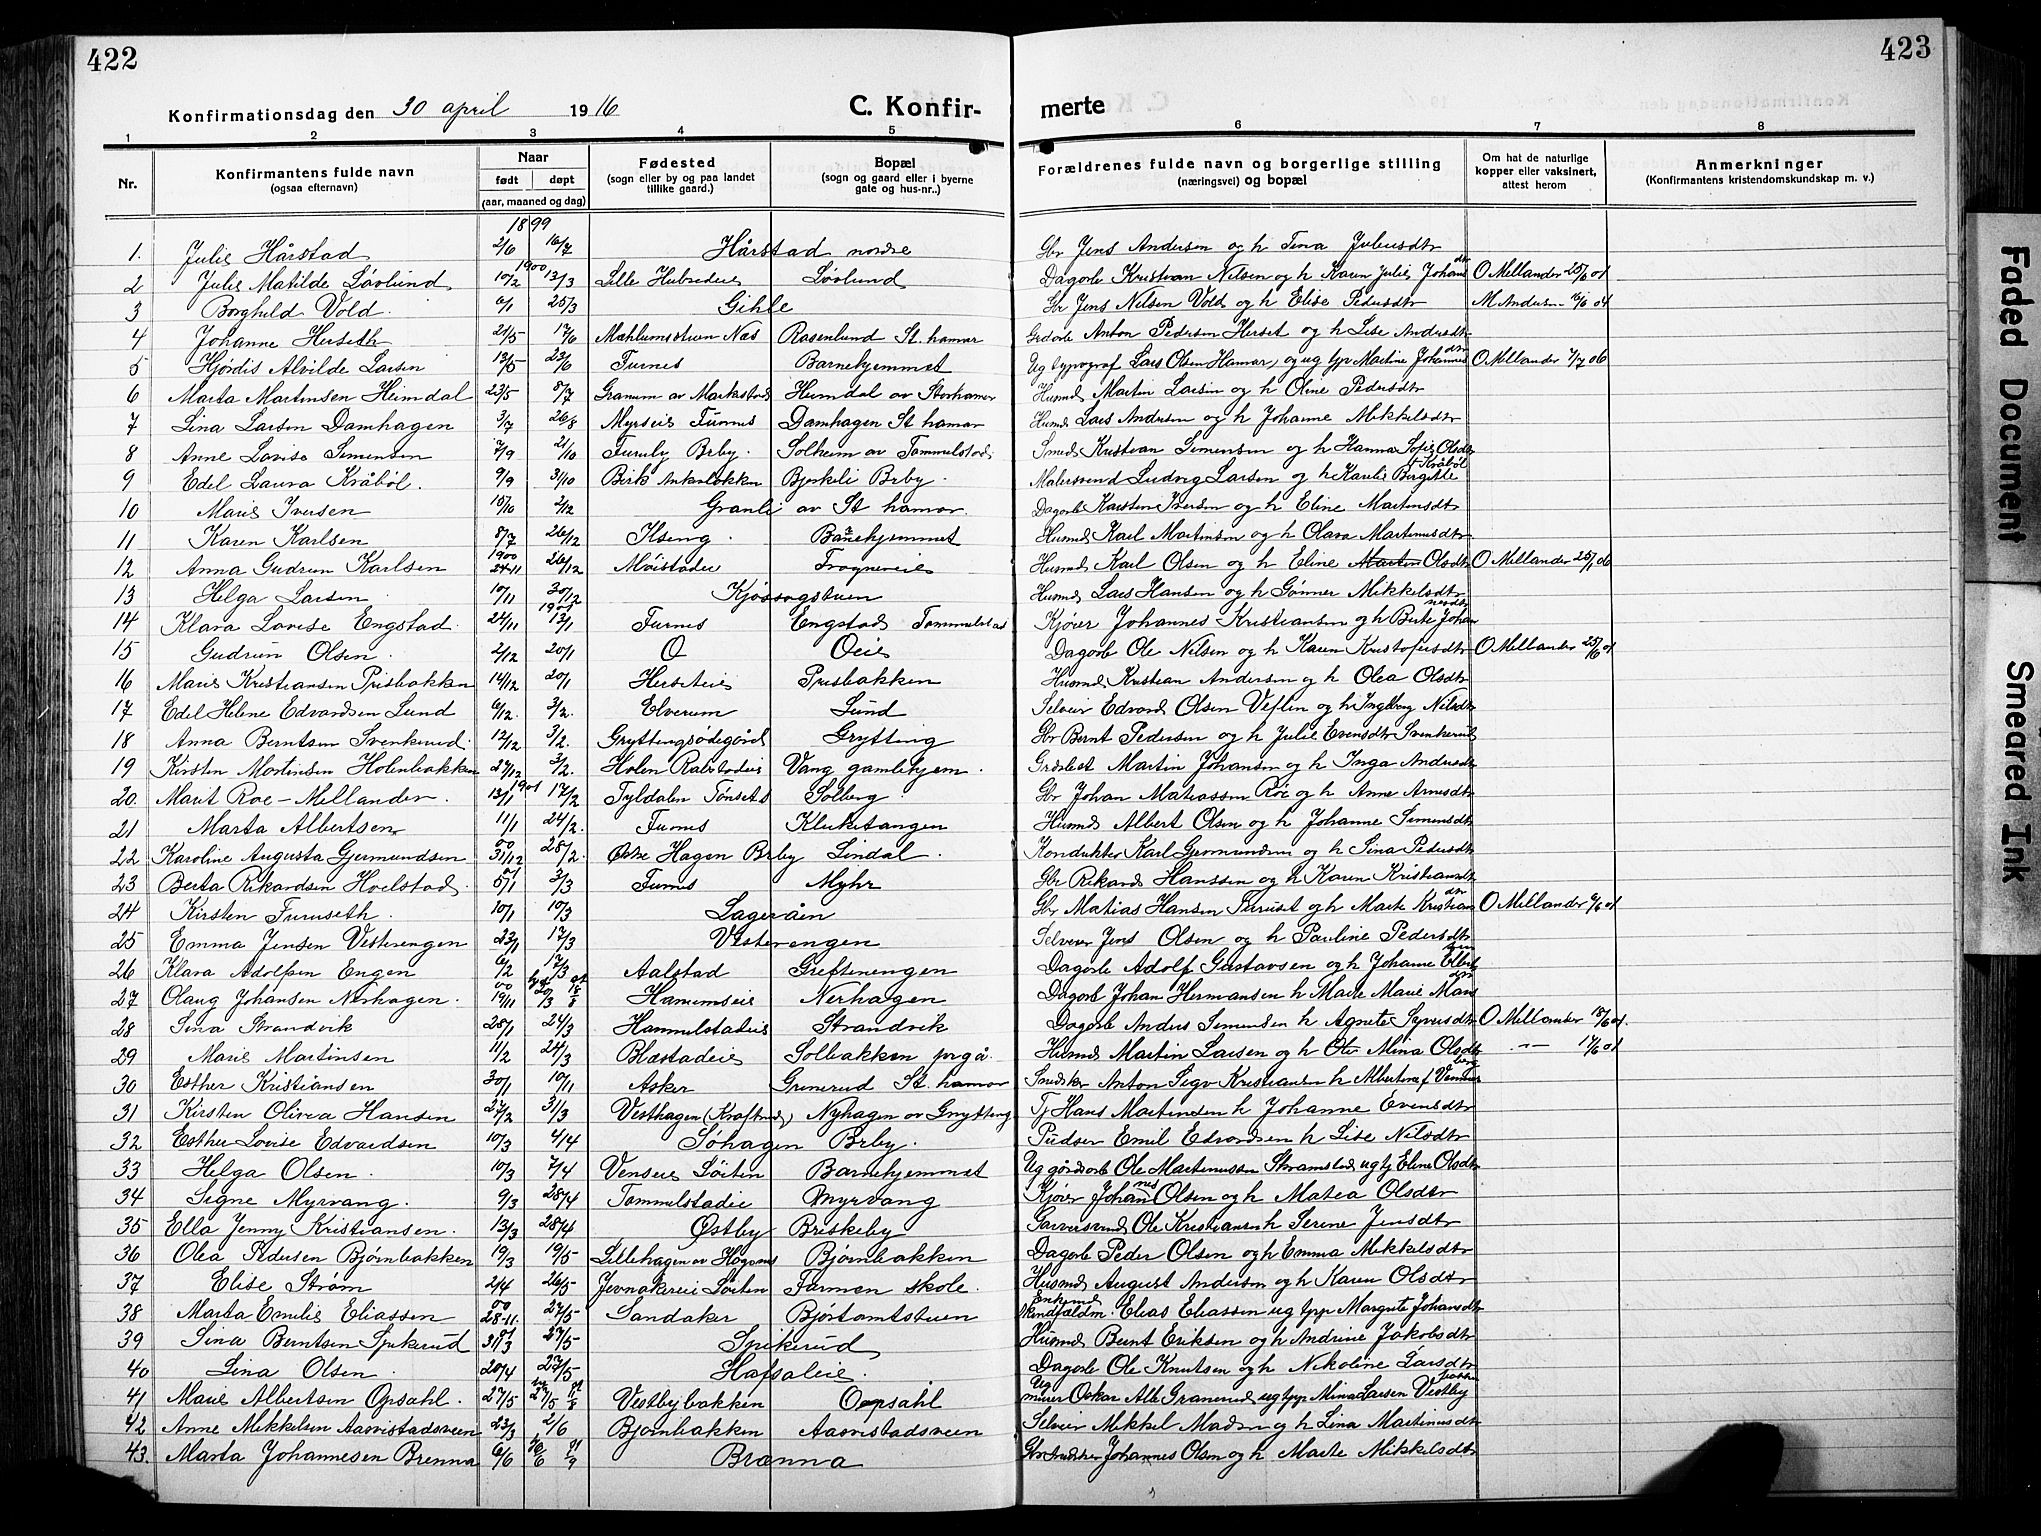 422
423
Konfirmationsdag den 30 april 1916
C. Konfir-
merte
1 2 3 4 5 6 7 8
Nr.
Konfirmantens fulde navn
(ogsaa efternavn)
Naar
født døpt
(aar, maaned og dag)
Fødested
(sogn eller by og paa landet
tillike gaard.)
Bopæl
(sogn og gaard eller i byerne
gate og hus-nr..)
Forældrenes fulde navn og borgerlige stilling
(næringsvei) og bopæl
Om hat de naturlige
kopper eller vaksinert,
attest herom
Anmerkninger
(Konfirmantens kristendomskundskap m. v.)
1899
1. Julie Hårstad 2/6 16/7 Hårstad nordre Gbr Jens Andersen og h Tina Juliusdtr
1900
2 Julie Matilde Løvlund 10/2 13/3 Lille Løvlund Dagarb Kristian Nilsen og h Karen Julie Johansdtr O Mellander
3 Borghild Vold 25/3 Gihle Gbr Jens Nilsen Vold og h Elise Pedersdtr M Anders
4 Johanne Herseth 21/5 17/6 Mæhlumsstuen Næs Rosenlund St. hamar Anton Pedersen Herset og h Lise Andersdtr
5 Hjørdis Alvilde Larsen 13/5 23/6 Furnes Barnehjemmet Ug typograf Lars Olsen Hamar, og ug tpi Martine Johannesdtr O Mellander 7/7 06
6 Marta Martinsen Heimdal 23/5 8/7 Granum av Heimdal av Storhamar Husmd Martin Larsen og h Oline Pedersdtr
7 Lina Larsen Damhagen 3/7 26/8 Furnes Damhagen St hamar Husmd Lars Andersen og h Johanne Mikkelsdtr
8 Anne Lovise Simensen 7/9 21/10 Furuly Brby. Solheim av Tommelstad Smed Kristian Simensen og h Hanna Sofie Olsdtr
9 Edel Laura Kråbøl. 9/9 31/10 Birk Ankerløkken Bjerkeli Brby. Malersvend Ludvig Larsen og h Kaulie Birgitte f Kråbøl
10 Marie Iversen 15/10 2/12 Granli av St hamar. Dagarb Karsten Iversen og h Eline Martinsdtr
11 Karen Karlsen 8/7 26/12 Ilseng. Barnehjemmet Husmd Karl Martinsen og h Olava Martinusdtr
1900
12 Anna Gudrun Karlsen 24-11 26/12 Møistadeie Trogneveie Husmd Karl Olsen og h Eline Olsdtr O Mellander
13 Helga Larsen 10/11 30/12 Husmd Lars Hansen og h Gønner Mikkelsdtr
1901
14 Klara Lovise Engstad 24/11 13/1 Furnes Engstad Tommelstad Kjører Johannes Kristiansen og h Berte Johannesdtr
15 Gudrun Olsen. 2/12 20/1 O Oeie Dagarb Ole Nilsen og h Karen Kristofersdtr O Mellander 25/6 01
16 Marie Kristiansen Prisbakken 14/12 20/1 Herseteie Prisbakken Husmd Kristian Andersen og h Olea Olsdtr
17 Edel Helene Edvardsen Lund 6/12. 3/2. Elverum Lund Selveier Edvard Olsen Veflin og h Ingeborg Nilsdtr
18 Anna Berntsen Svenkerud 12/12 3/2. Gryttingsødegård Grytting Gbr Bernt Pedersen og h Julie Evensdtr Svenkerud
19 Kirsten Martinsen Holenbakken 27/12 3/2. Holen Vang gamlehjem. Martin Johansen og h Inga Andersdtr
1901
20. Marit Roe-Mellander. 13/1 17/2 Tyldalen Tønset Solberg Gbr Johan Matiassen Røe og h Anne Arnesdtr
21 Marta Albertsen 11/1 24/2. Furnes Kluketangen Husmd Albert Olsen og h Johanne Simensdtr
22 Karoline Augusta Gjermundsen 00 31/12 28/2. Østre Hagen Brby Lindal. Konduktør Karl Gjermundsen og h Lina Pedersdtr
23 Berta Rikardsen Hoelstad 5/1 3/3 Furnes Myhr Gbr Rikard Hanssen og h Karen Kristiansdtr
24 Kirsten Furuseth. 10/1 10/3 Lageråen Gbr Matias Hansen Furuset og h Marte Kristiansdtr O Mellander
25 Emma Jensen Vesterengen 23/1 17/3 Vesterengen Selveier Jens Olsen og h Pauline Pedersdtr
26 Klara Adolfsen Engen 6/2 17/3 Aalstad Greftenengen Dagarb Adolf Gustavsen og h Johanne
27 Olaug Johansen Nerhagen. 00 19/11 Nerhagen Dagarb Johan Hermansen h Marte Marie
28 Lina Strandvik 28/1 24/3 Hammelstadeie Strandvik Dagarb Anders Simensen h Agnete Syversdtr O Mellander 18/6 01.
29 Marie Martinsen 11/2 24/3 Blæstadeie Solbakken Husmd Martin Larsen og h Mina Olsdtr -"- 17/6 01
30 Esther Kristiansen 30/1 10/11 Asker Grinerud St. hamar Snedker Anton Sigv Kristiansen h Albertine f
31 Kirsten Olivea Hansen 27/2 31/3 Vesthagen Nyhagen av Grytting Tj Hans Martinsen h Johanne Evensdtr
32 Esther Lovise Edvardsen 10/3 4/14 Søhagen Brby. Pudser Emil Edvardsen h Lise Nilsdtr
33 Helga Olsen. 10/3 7/14 Løiten Barnehjemmet Ug gårdsarb Ole Martinussen ug tj Eline Olsdtr
34 Signe Myrvang. 9/3 28/4 Tommelstadeie Myrvang Kjører Johannes Olsen og h Matea Olsdtr
35 Ella Jenny Kristiansen. 13/3 28/4 Østby Briskeby Garversvend Ole Kristiansen h Serine Jensdtr
36 Olea Pedersen Bjørnbakken 19/3 19/5 Lillehagen av Bjørnbakken Dagarb Peder Olsen og h Emma Mikkelsdtr
37 Elise Strøm 2/4 26/5 Jevnakereie Løiten Farmen skole. Husmd August Andersen og h Karen Olsdtr
38 Marta Emilie Eliassen 00 28-11. 27/5 Sandaker Enkemd Elias Eliassen ug tpi Margrete Johansdtr
39 Lina Berntsen Spikerud 31/3 27/5 Spikerud Husmd Bernt Eriksen og h Andrine Jakobsdtr
40 Lina Olsen 20/4 27/5 Hafsaleie. Dagarb Ole Knutsen og h Nikoline Larsdtr
41 Marie Albertsen Opsahl. 27/5 Vestbybakken Opsahl Ug murer Oskar Alb Granerud ug tpi Mina Larsen Vestby
42 Anne Mikkelsen Aasvistadsveen 23/3 2/6 Bjørnbakken Aasvistadsveen Selveier Mikkel Madsen og h Lina Martinusdtr
43. Marta Johannesen Brenna 6/6 Brænna Johannes Olsen og h Marte Mikkelsdtr
Faded Document
Smeared Ink